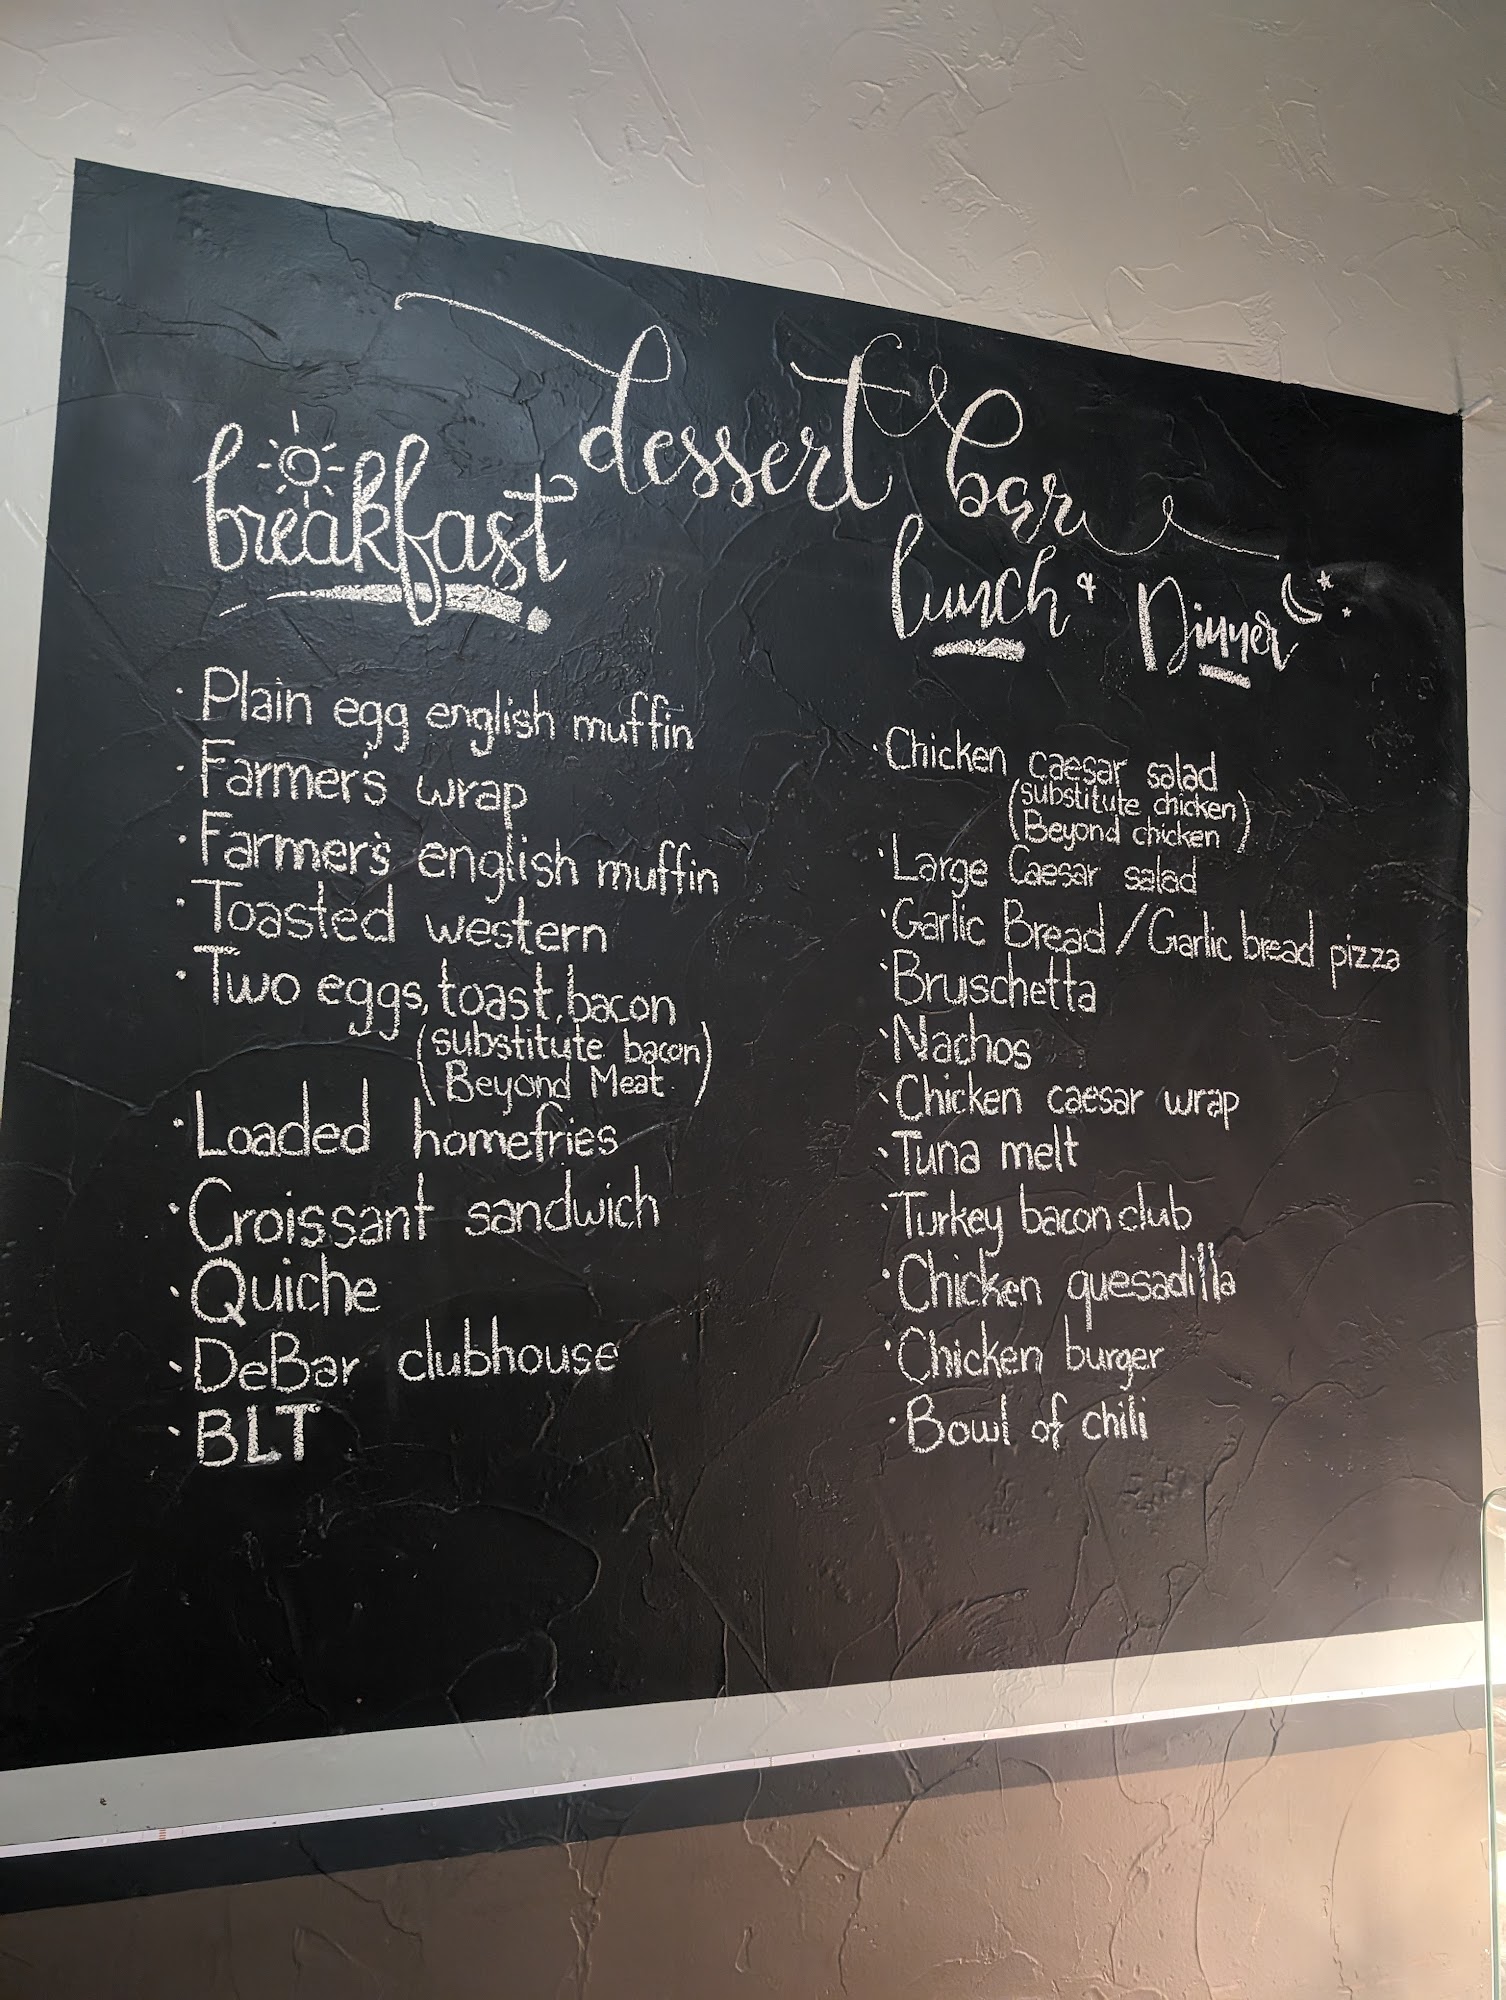 dessert bar
breakfast
· Plain egg english muffin
· Farmer's wrap
· Farmer's english muffin
· Toasted western
· Two eggs, toast, bacon
(substitute bacon)
(Beyond Meat)
· Loaded homefries
· Croissant sandwich
· Quiche
· DeBar clubhouse
· BLT
lunch + Dinner
· Chicken caesar salad
(substitute chicken)
(Beyond chicken)
· Large Caesar salad
· Garlic Bread / Garlic bread pizza
· Bruschetta
· Nachos
· Chicken caesar wrap
· Tuna melt
· Turkey bacon club
· Chicken quesadilla
· Chicken burger
· Bowl of chili